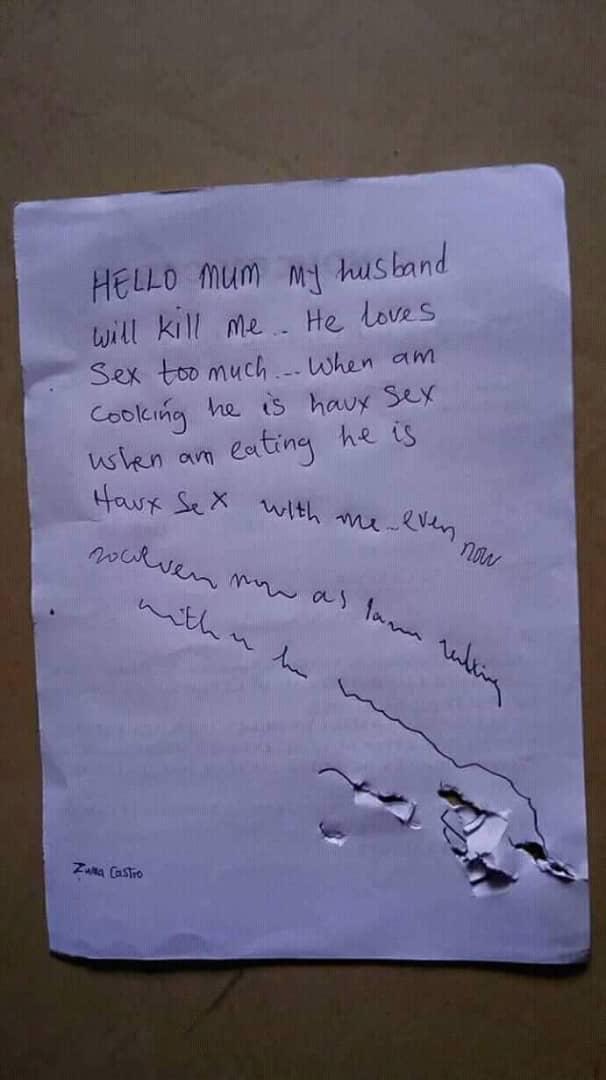 HELLO MUM My husband
will kill me.. He loves
Sex too much... When am
Cooking he is havx Sex
when am eating he is
Havx Sex with me..even now
even now as I am talking
with u he
Zuma Castro